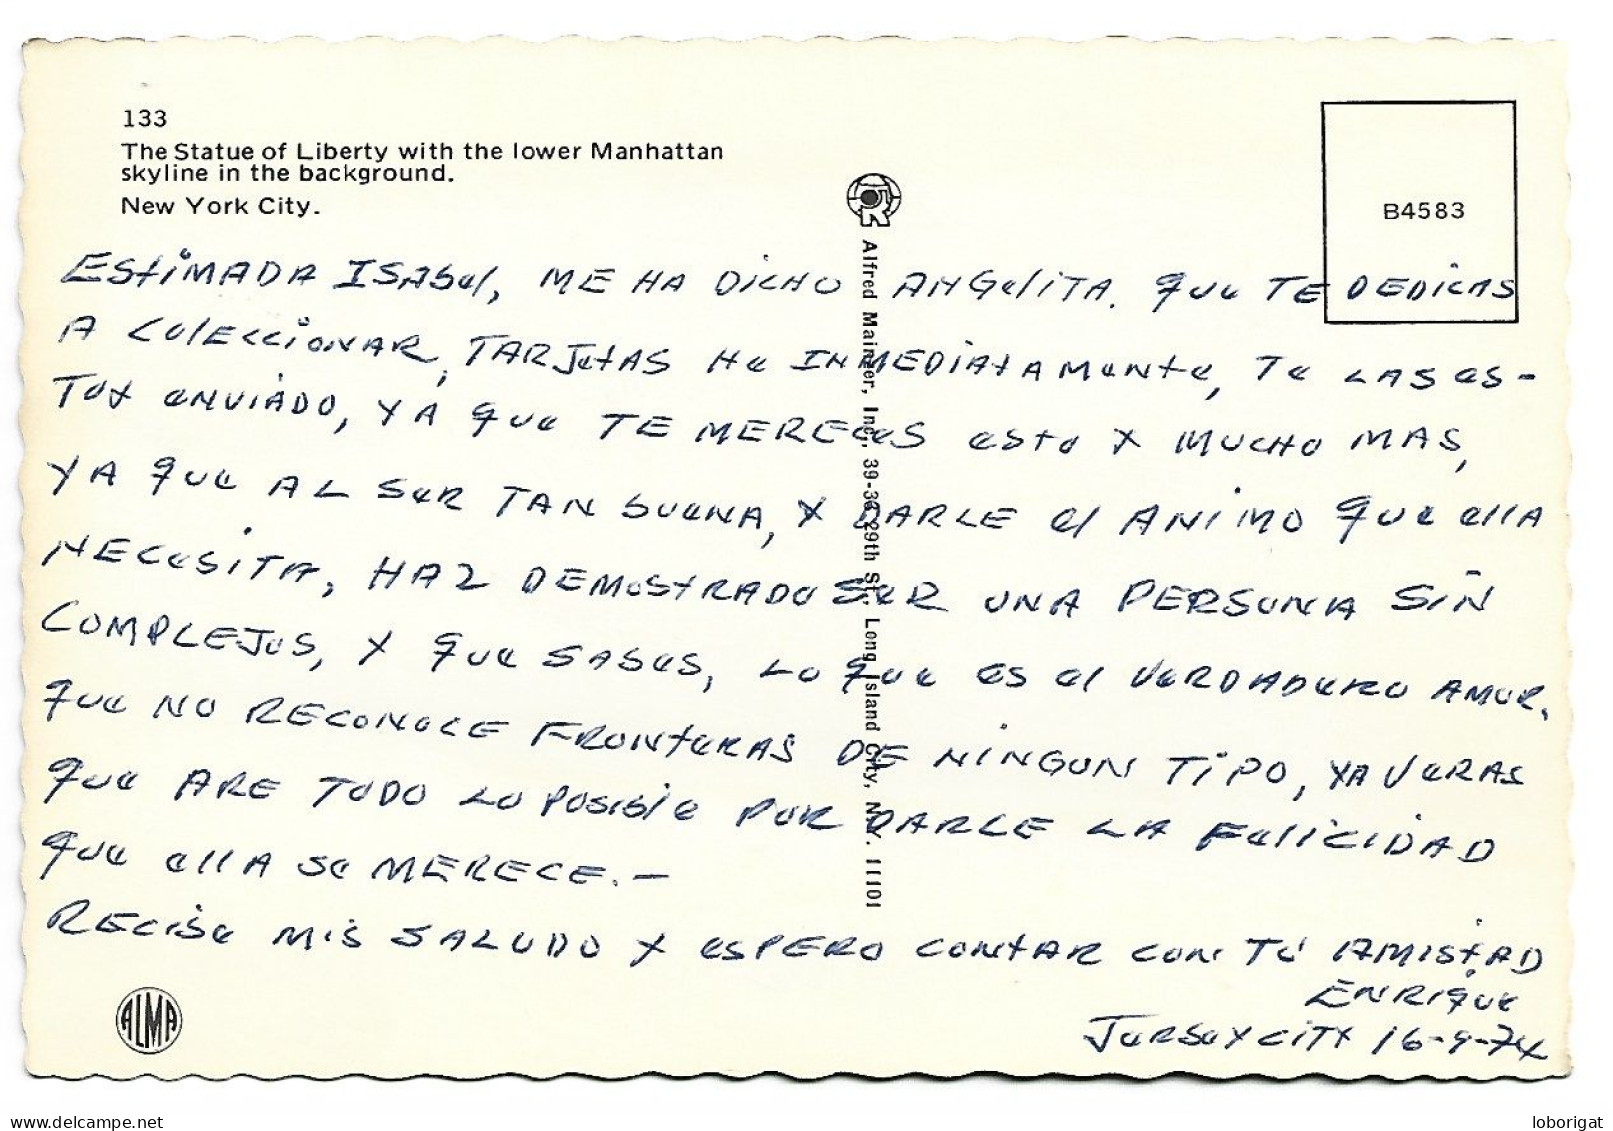 133
The Statue of Liberty with the lower Manhattan
skyline in the background.
New York City.
B4583
Alfred Mainzer, Inc., 39-36 29th St., Long Island City, N.Y. 11101
ESTIMADA ISABel, ME HA DICHO ANGeliTA. que TE DEDICAS
A COLECCIONAR, TARJetAS He INMEDIATAMente, Te LAS es-
TOY enVIADO, YA que TE MERECeS esto Y MUCHO MAS,
YA que AL SeR TAN bueNA, Y DARLE el ANIMO que ellA
NECeSITA, HAZ DEMOSTRADO SeR UNA PERSONA SIN
COMPLEJOS, Y que SABeS, LO que es el VeRDADeRO AMOR.
que NO RECONOCE FRONTeRAS DE NINGUN TIPO, YA VeRAS
que ARE TODO LO POSIBle POR DARLE LA FeliciDAD
que ellA se MERECE.-
RECIBe MIS SALUDO Y esPERO CONTAR CON TU AMISTAD
ENRIque
JeRSeY CITY 16-9-74
ALMA
loborigat